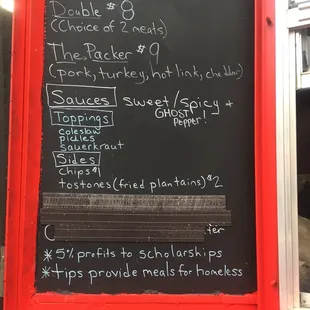 Double $8
(Choice of 2 meats)
The Packer $9
(pork, turkey, hot link, cheddar)
Sauces sweet/spicy +
GHOST
PEPPER!
Toppings
coleslaw
pickles
sauerkraut
Sides
chips $1
tostones (fried plantains) $2
*5% profits to scholarships
*tips provide meals for homeless